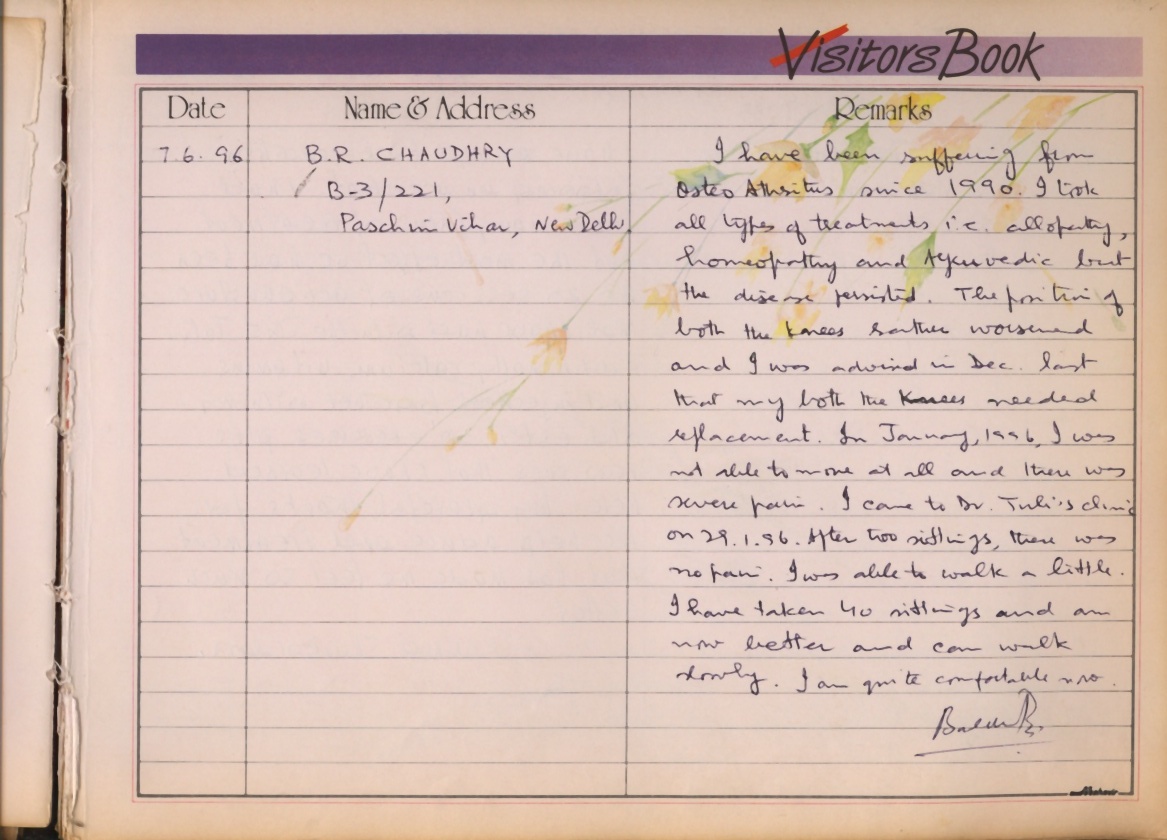 Visitors Book
Date Name & Address Remarks
7.6.96 B.R. CHAUDHRY I have been suffering from
B-3/221, Osteo Athsitis since 1990. I took
Paschim Vihar, New Delhi. all types of treatments i.e. allopathy,
homeopathy and Ayurvedic but
the disease persisted. The position of
both the knees rather worsened
and I was advised in Dec. last
that my both the knees needed
replacement. In January, 1996, I was
not able to move at all and there was
severe pain. I came to Dr. Tuli's clinic
on 29.1.96. After two sittings, there was
no pain. I was able to walk a little.
I have taken 40 sittings and am
now better and can walk
slowly. I am quite comfortable now.